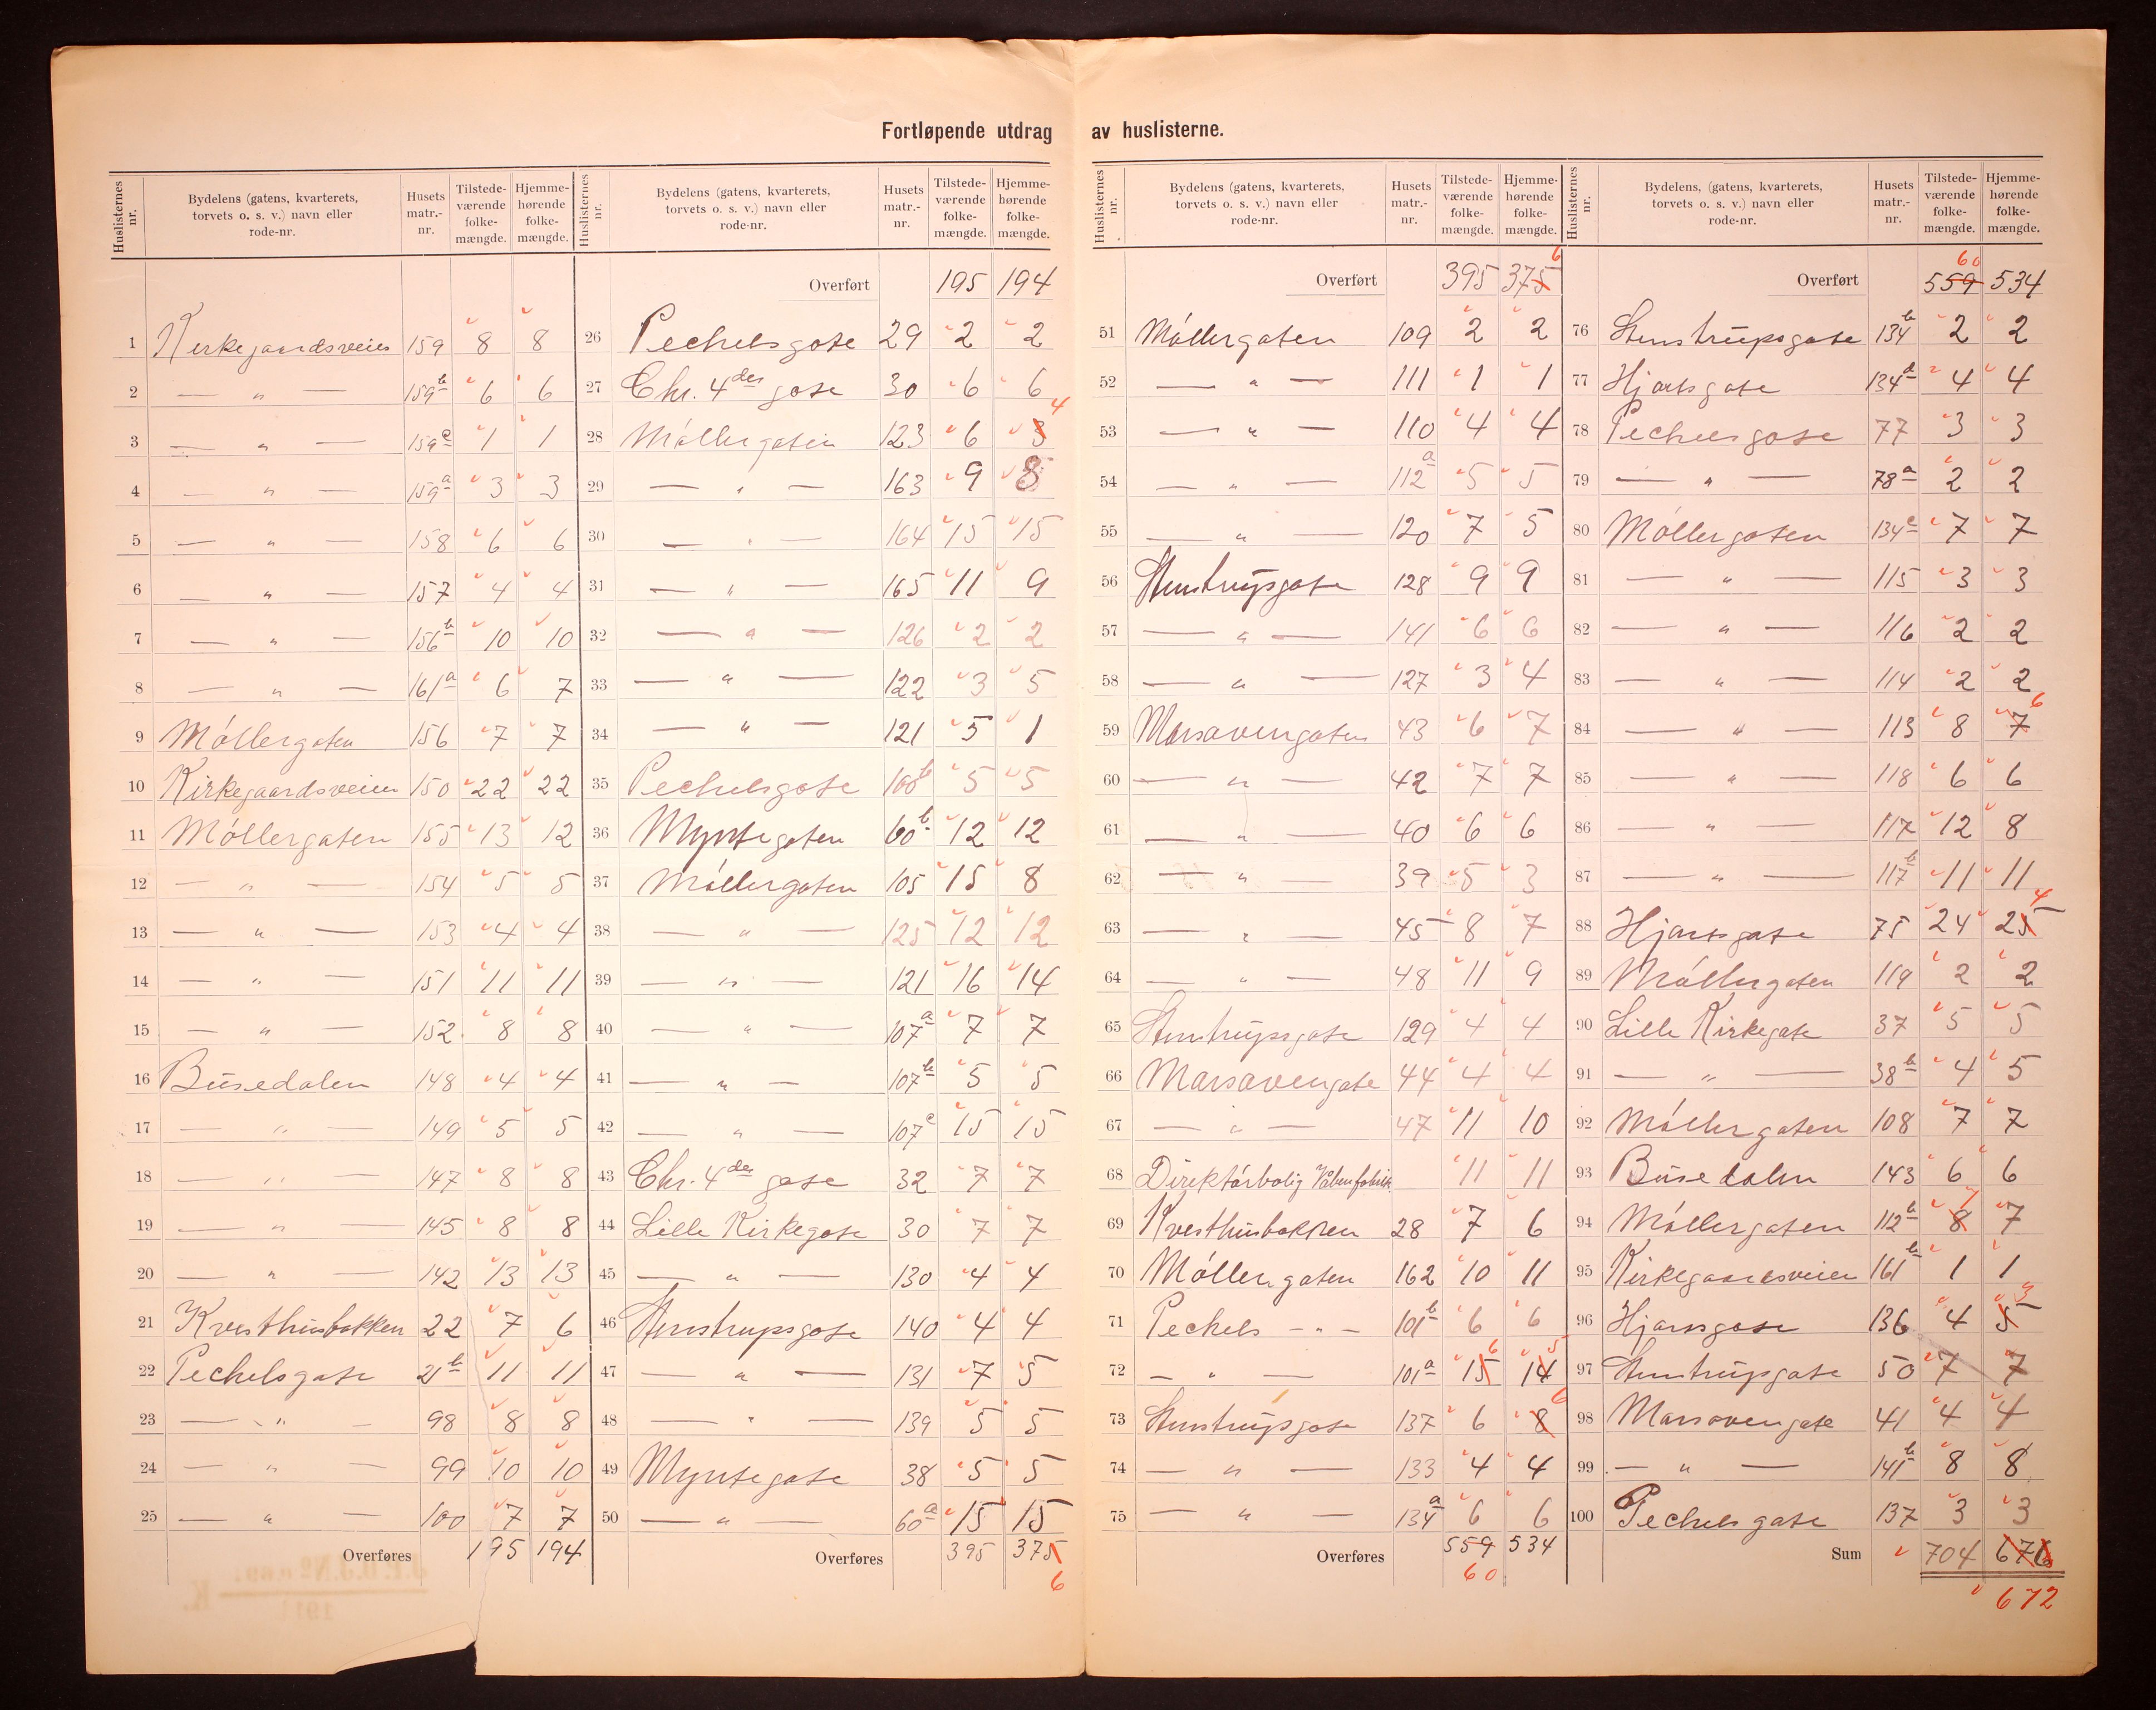 Fortløpende utdrag av huslisterne.
Huslisternes nr. | Bydelens (gatens, kvarterets, torvets o. s. v.) navn eller rode-nr. | Husets matr.-nr. | Tilstede-værende folke-mængde. | Hjemme-hørende folke-mængde.
1 Kirkegaardsveien 159 8 8
2 — „ — 159b 6 6
3 — „ — 159c 1 1
4 — „ — 159a 3 3
5 — „ — 158 6 6
6 — „ — 157 4 4
7 — „ — 156b 10 10
8 — „ — 161a 6 7
9 Møllergaten 156 7 7
10 Kirkegaardsveien 150 22 22
11 Møllergaten 155 13 12
12 — „ — 154 5 5
13 — „ — 153 4 4
14 — „ — 151 11 11
15 — „ — 152 8 8
16 Büsedalen 148 4 4
17 — „ — 149 5 5
18 — „ — 147 8 8
19 — „ — 145 8 8
20 — „ — 142 13 13
21 Kvesthusbakken 22 7 6
22 Pechelsgate 21b 11 11
23 — „ — 98 8 8
24 — „ — 99 10 10
25 — „ — 100 7 7
Overføres 195 194
Huslisternes nr. | Bydelens (gatens, kvarterets, torvets o. s. v.) navn eller rode-nr. | Husets matr.-nr. | Tilstede-værende folke-mængde. | Hjemme-hørende folke-mængde.
Overført 195 194
26 Pechelsgate 29 2 2
27 Chr. 4des gate 30 6 6
28 Møllergaten 123 6 3 4
29 — „ — 163 9 8
30 — „ — 164 15 15
31 — „ — 165 11 9
32 — „ — 126 2 2
33 — „ — 122 3 5
34 — „ — 121 5 1
35 Pechelsgate 100b 5 5
36 Myntegaten 60b 12 12
37 Møllergaten 105 15 8
38 — „ — 125 12 12
39 — „ — 121 16 14
40 — „ — 107a 7 7
41 — „ — 107b 5 5
42 — „ — 107c 15 15
43 Chr. 4des gate 32 7 7
44 Lille Kirkegate 30 7 7
45 — „ — 130 4 4
46 Stenstrupsgate 140 4 4
47 — „ — 131 7 5
48 — „ — 139 5 5
49 Myntegate 38 5 5
50 — „ — 60a 15 15
Overføres 395 375
6
Huslisternes nr. | Bydelens (gatens, kvarterets, torvets o. s. v.) navn eller rode-nr. | Husets matr.-nr. | Tilstede-værende folke-mængde. | Hjemme-hørende folke-mængde.
Overført 395 375 6
51 Møllergaten 109 2 2
52 — „ — 111 1 1
53 — „ — 110 4 4
54 — „ — 112a 5 5
55 — „ — 120 7 5
56 Stenstrüpsgate 128 9 9
57 — „ — 141 6 6
58 — „ — 127 3 4
59 Morsavengaten 43 6 7
60 — „ — 42 7 7
61 — „ — 40 6 6
62 — „ — 39 5 3
63 — „ — 45 8 7
64 — „ — 48 11 9
65 Stenstrüpsgate 129 4 4
66 Marsavengate 44 4 4
67 — „ — 47 11 10
68 Direktørbolig Våbenfabrik 11 11
69 Kvesthusbakken 28 7 6
70 Møllergaten 162 10 11
71 Pechels – „ – 101b 6 6
72 — „ — 101a 15 6 14 5
73 Stenstrüpsgate 137 6 8 6
74 — „ — 133 4 4
75 — „ — 134a 6 6
Overføres 559 534
60
Huslisternes nr. | Bydelens, (gatens, kvarterets, torvets o. s. v.) navn eller rode-nr. | Husets matr.-nr. | Tilstede-værende folke-mængde. | Hjemme-hørende folke-mængde.
60
Overført 559 534
76 Stenstrüpsgate 134b 2 2
77 Hjortsgate 134a 4 4
78 Pechelsgate 77 3 3
79 — „ — 78a 2 2
80 Møllergaten 134c 7 7
81 — „ — 115 3 3
82 — „ — 116 2 2
83 — „ — 114 2 2
84 — „ — 113 8 7 6
85 — „ — 118 6 6
86 — „ — 117 12 8
87 — „ — 117b 11 11
88 Hjortsgate 75 24 25 4
89 Møllergaten 119 2 2
90 Lille Kirkegate 37 5 5
91 — „ — 38b 4 5
92 Møllergaten 108 7 7
93 Büsedalen 143 6 6
94 Møllergaten 112b 8 7 7
95 Kirkegaardsveien 161b 1 1
96 Hjortsgate 136 4 5 3
97 Stenstrüpsgate 50 7 7
98 Marsavengate 41 4 4
99 — „ — 141b 8 8
100 Pechelsgate 137 3 3
Sum 704 676
672